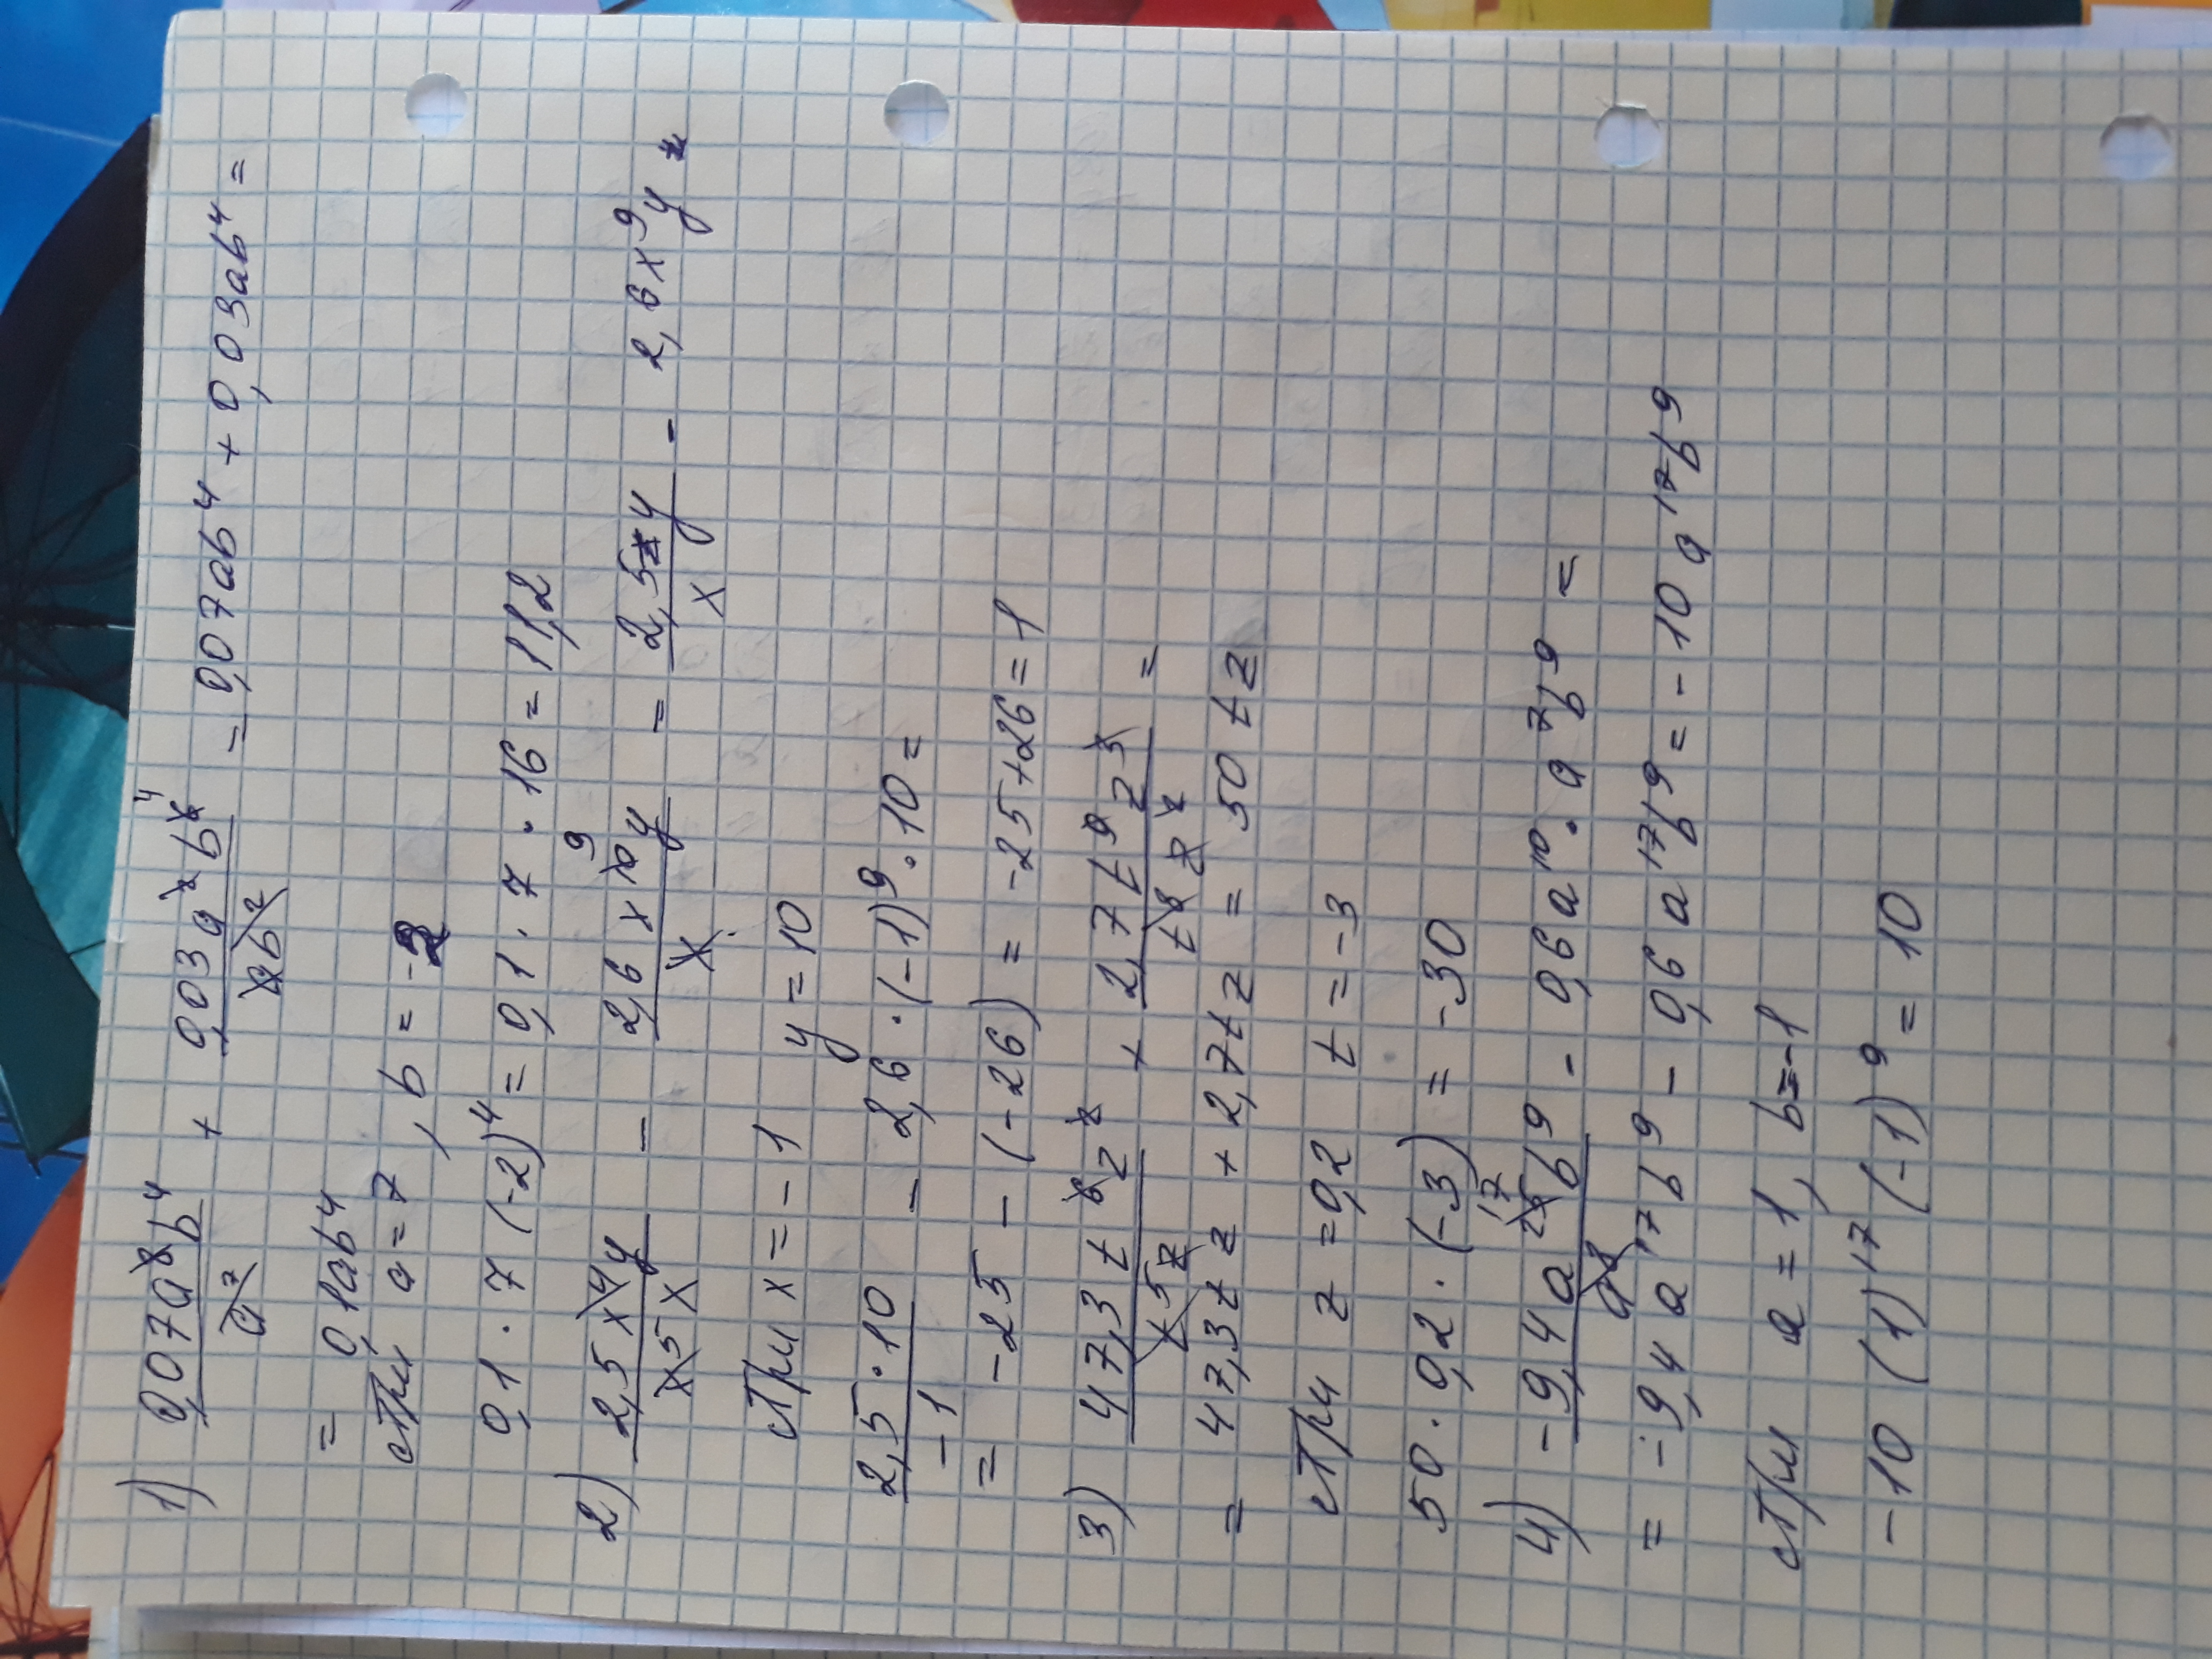 1) 0,07a⁸b⁴/a⁷ + 0,03a²b⁶⁴/ab² = 0,07ab⁴ + 0,03ab⁴ =
= 0,1ab⁴
при a = 7, b = -2
0,1 · 7 (-2)⁴ = 0,1 · 7 · 16 = 11,2
2) 2,5x⁴y/x⁵x - 2,6x¹⁰⁹y/x = 2,5y/x - 2,6x⁹y
При x = -1 y = 10
2,5·10/-1 - 2,6·(-1)⁹·10 =
= -25 - (-26) = -25+26 = 1
3) 47,3t⁶z²/t⁵z + 2,7t⁹z³/t⁸z² =
= 47,3tz + 2,7tz = 50tz
При z = 0,2 t = -3
50 · 0,2 · (-3) = -30
4) -9,4a²⁵¹⁷b⁹/a⁸ - 0,6a¹⁰·a⁷b⁹ =
= -9,4a¹⁷b⁹ - 0,6a¹⁷b⁹ = -10a¹⁷b⁹
При a = 1, b=-1
-10 (1)¹⁷ (-1)⁹ = 10